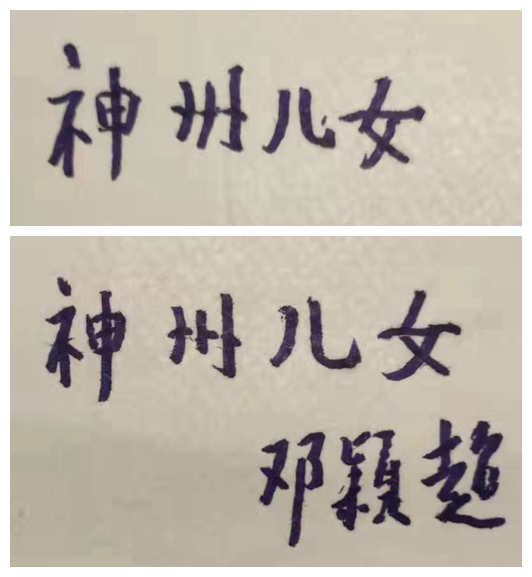 神州儿女
神州儿女
邓颖超